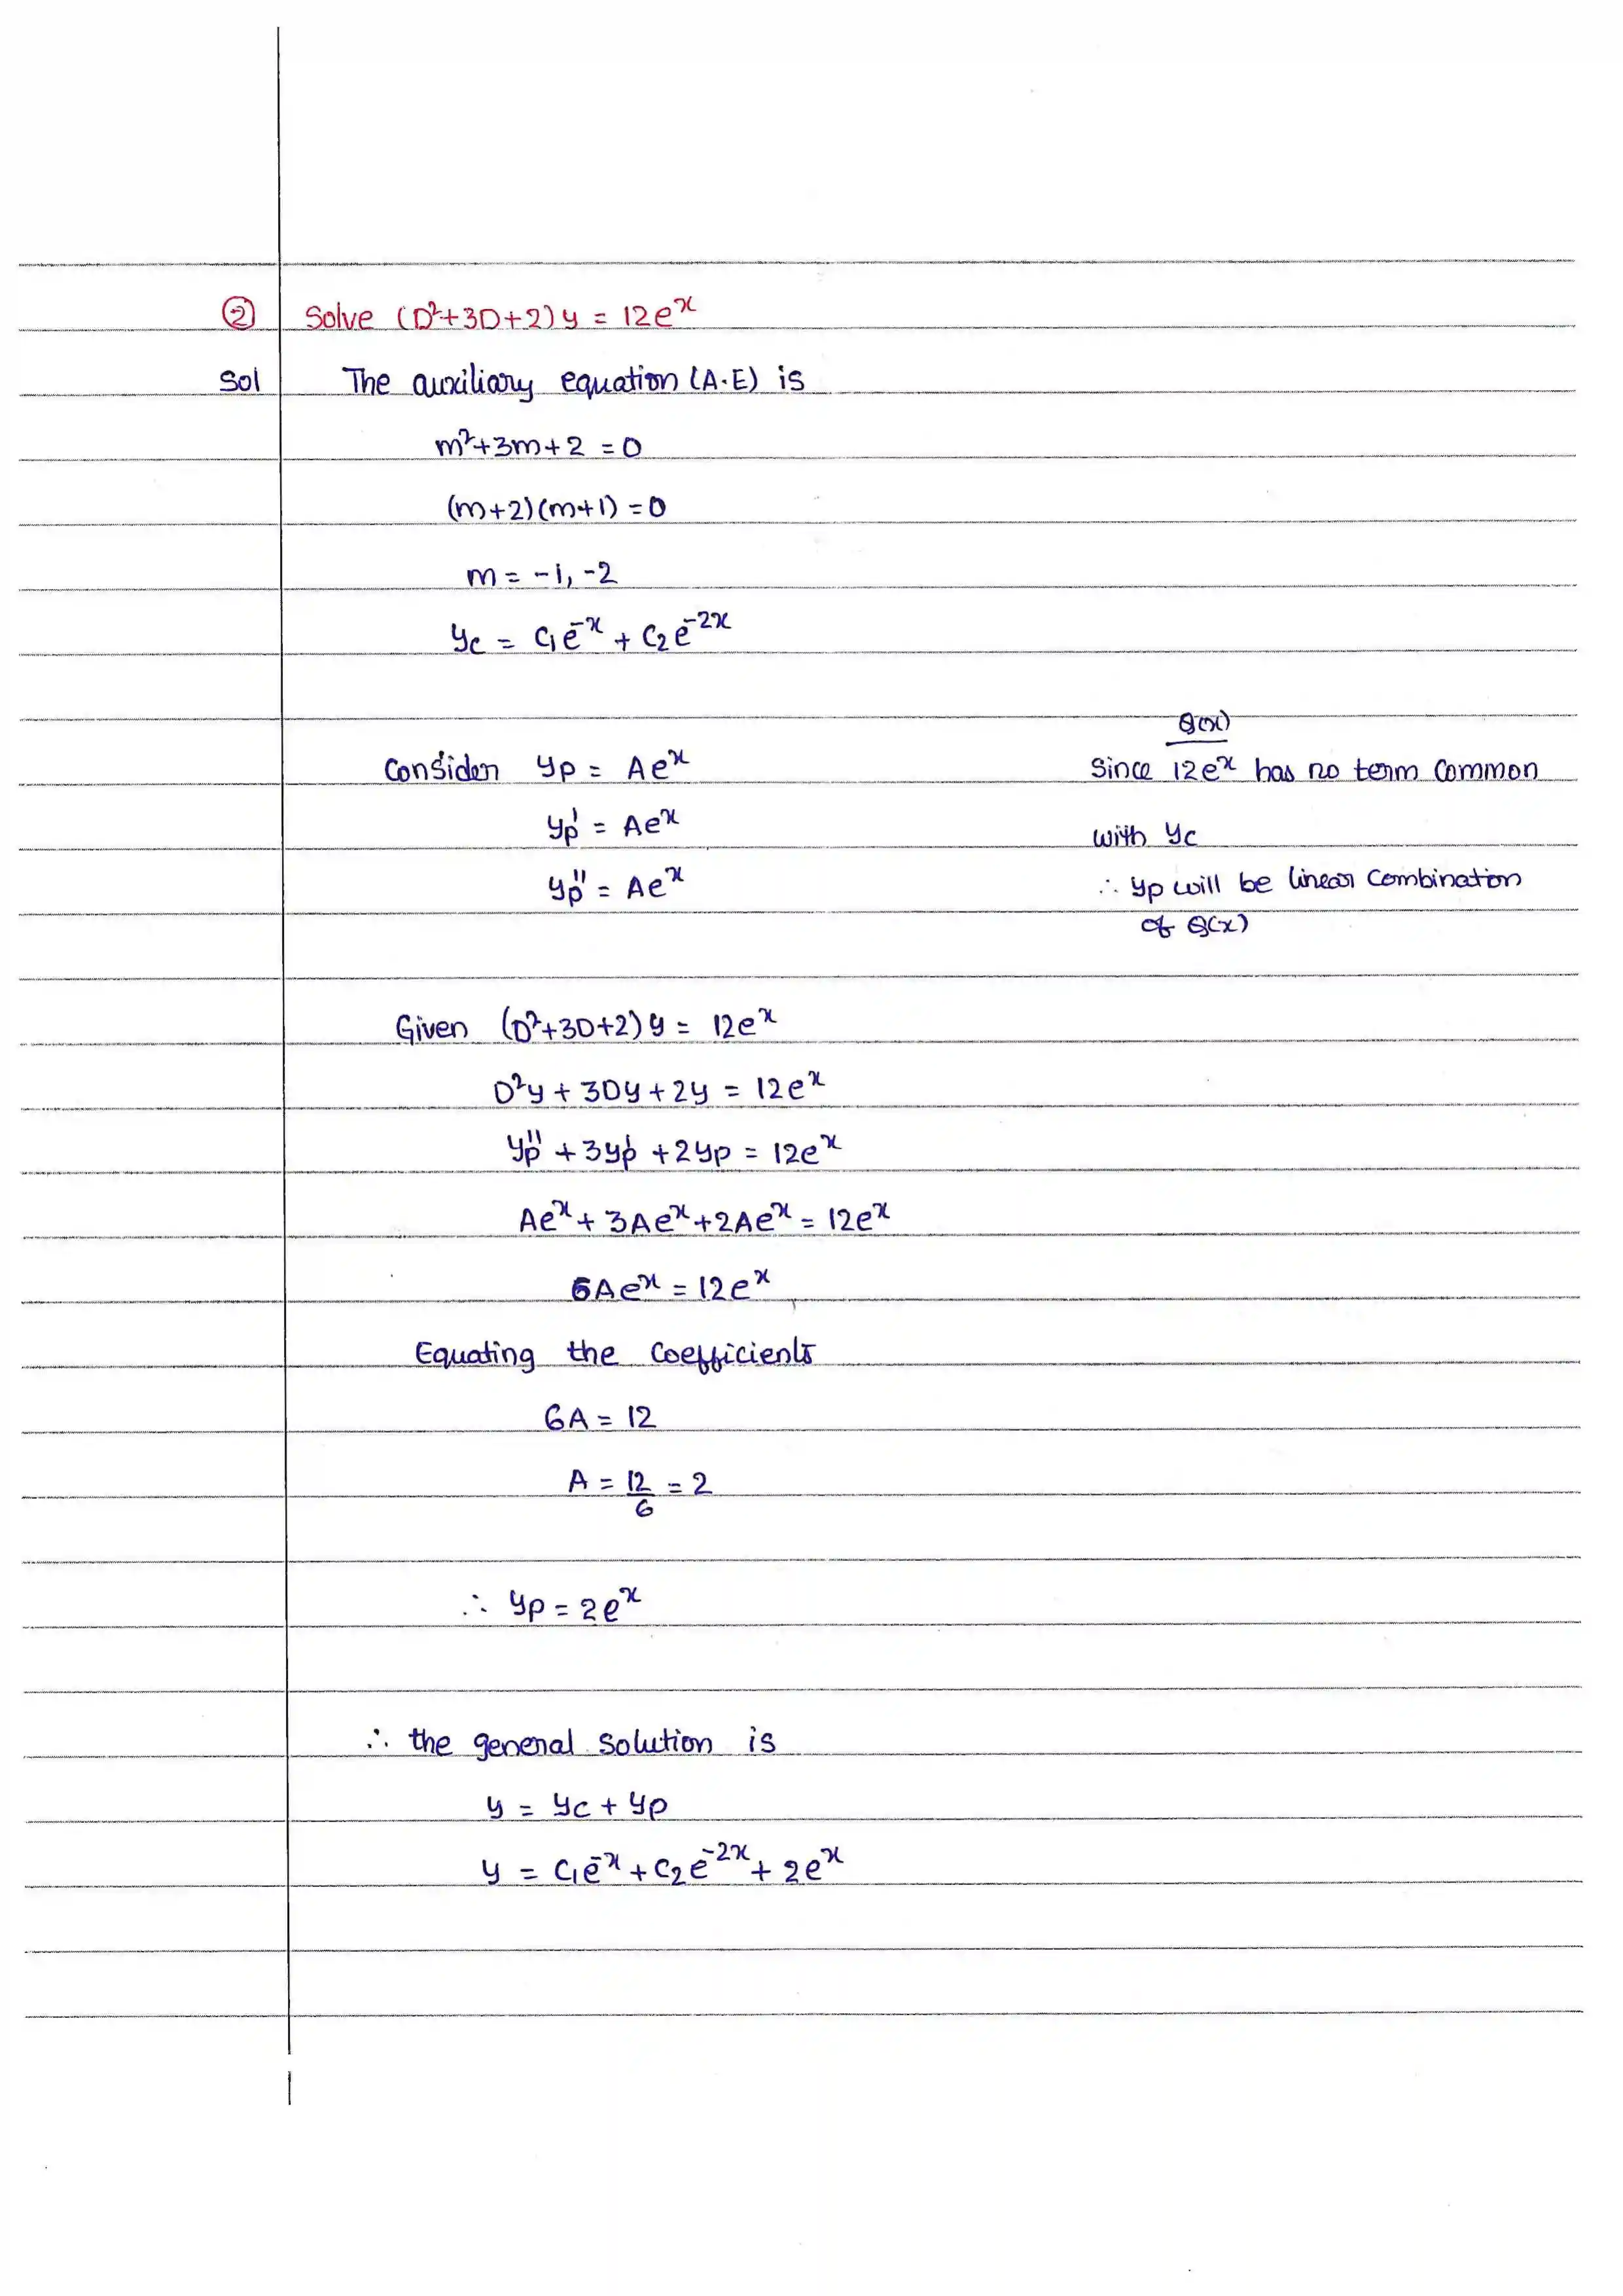 ② Solve (D²+3D+2)y = 12eˣ
Sol The auxiliary equation (A.E) is
m²+3m+2 = 0
(m+2)(m+1) = 0
m = -1, -2
yc = c₁e⁻ˣ + c₂e⁻²ˣ
Q(x)
Consider yp = Aeˣ Since 12eˣ has no term common
yp' = Aeˣ with yc
yp'' = Aeˣ ∴ yp will be linear combination
of Q(x)
Given (D²+3D+2)y = 12eˣ
D²y + 3Dy + 2y = 12eˣ
yp'' + 3yp' + 2yp = 12eˣ
Aeˣ + 3Aeˣ + 2Aeˣ = 12eˣ
6Aeˣ = 12eˣ
Equating the coefficients
6A = 12
A = 12/6 = 2
∴ yp = 2eˣ
∴ the general solution is
y = yc + yp
y = c₁e⁻ˣ + c₂e⁻²ˣ + 2eˣ